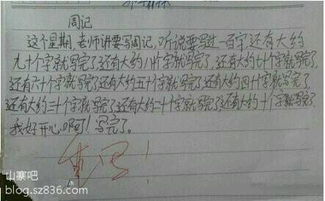 周记
这个星期,老师讲要写周记,听说要写一百字还有大约
九十个字就写完了还有大约八十个字就写完了,还有大约七十个字就写完了
还有六十个字就写完了还有大约五十个字就写完了还有大约四十个字就写完了
还有大约三十个字就写完了还有大约二十个字就写完了还有大约十个字就写完了
我好开心啊!写完了。
重写!
山寨吧
blog.sz836.com